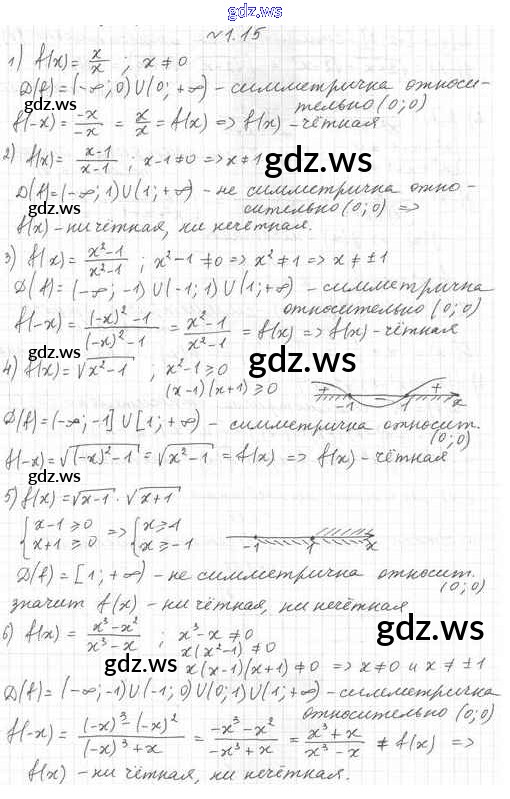 gdz.ws
№1.15
1) f(x) = x/x ; x ≠ 0
D(f) = (-∞; 0) ∪ (0; +∞) - симметрична относи-
тельно (0; 0)
f(-x) = -x/-x = x/x = f(x) => f(x) - чётная
2) f(x) = x-1/x-1 ; x-1 ≠ 0 => x ≠ 1
gdz.ws
gdz.ws
D(f) = (-∞; 1) ∪ (1; +∞) - не симметрична отно-
gdz.ws
сительно (0; 0) =>
f(x) - ни чётная, ни нечётная.
3) f(x) = x²-1/x²-1 ; x²-1 ≠ 0 => x² ≠ 1 => x ≠ ±1
D(f) = (-∞; -1) ∪ (-1; 1) ∪ (1; +∞) - симметрична
относительно (0; 0)
f(-x) = (-x)²-1/(-x)²-1 = x²-1/x²-1 = f(x) => f(x) - чётная
gdz.ws
gdz.ws
4) f(x) = √x²-1 ; x²-1 ≥ 0
(x-1)(x+1) ≥ 0
+ - + -1 1 x
D(f) = (-∞; -1] ∪ [1; +∞) - симметрична относит.
(0; 0)
f(-x) = √(-x)²-1 = √x²-1 = f(x) => f(x) - чётная
gdz.ws
5) f(x) = √x-1 · √x+1
{ x-1 ≥ 0 => { x ≥ 1
{ x+1 ≥ 0 { x ≥ -1
-1 1 x
D(f) = [1; +∞) - не симметрична относит.
(0; 0)
значит f(x) - ни чётная, ни нечётная
gdz.ws
6) f(x) = x³-x²/x³-x ; x³-x ≠ 0
x(x²-1) ≠ 0
gdz.ws
x(x-1)(x+1) ≠ 0 => x ≠ 0 и x ≠ ±1
D(f) = (-∞; -1) ∪ (-1; 0) ∪ (0; 1) ∪ (1; +∞) - симметрична
относительно (0; 0)
f(-x) = (-x)³-(-x)²/(-x)³+x = -x³-x²/-x³+x = x³+x/x³-x ≠ f(x) =>
f(x) - ни чётная, ни нечётная.
gdz.ws